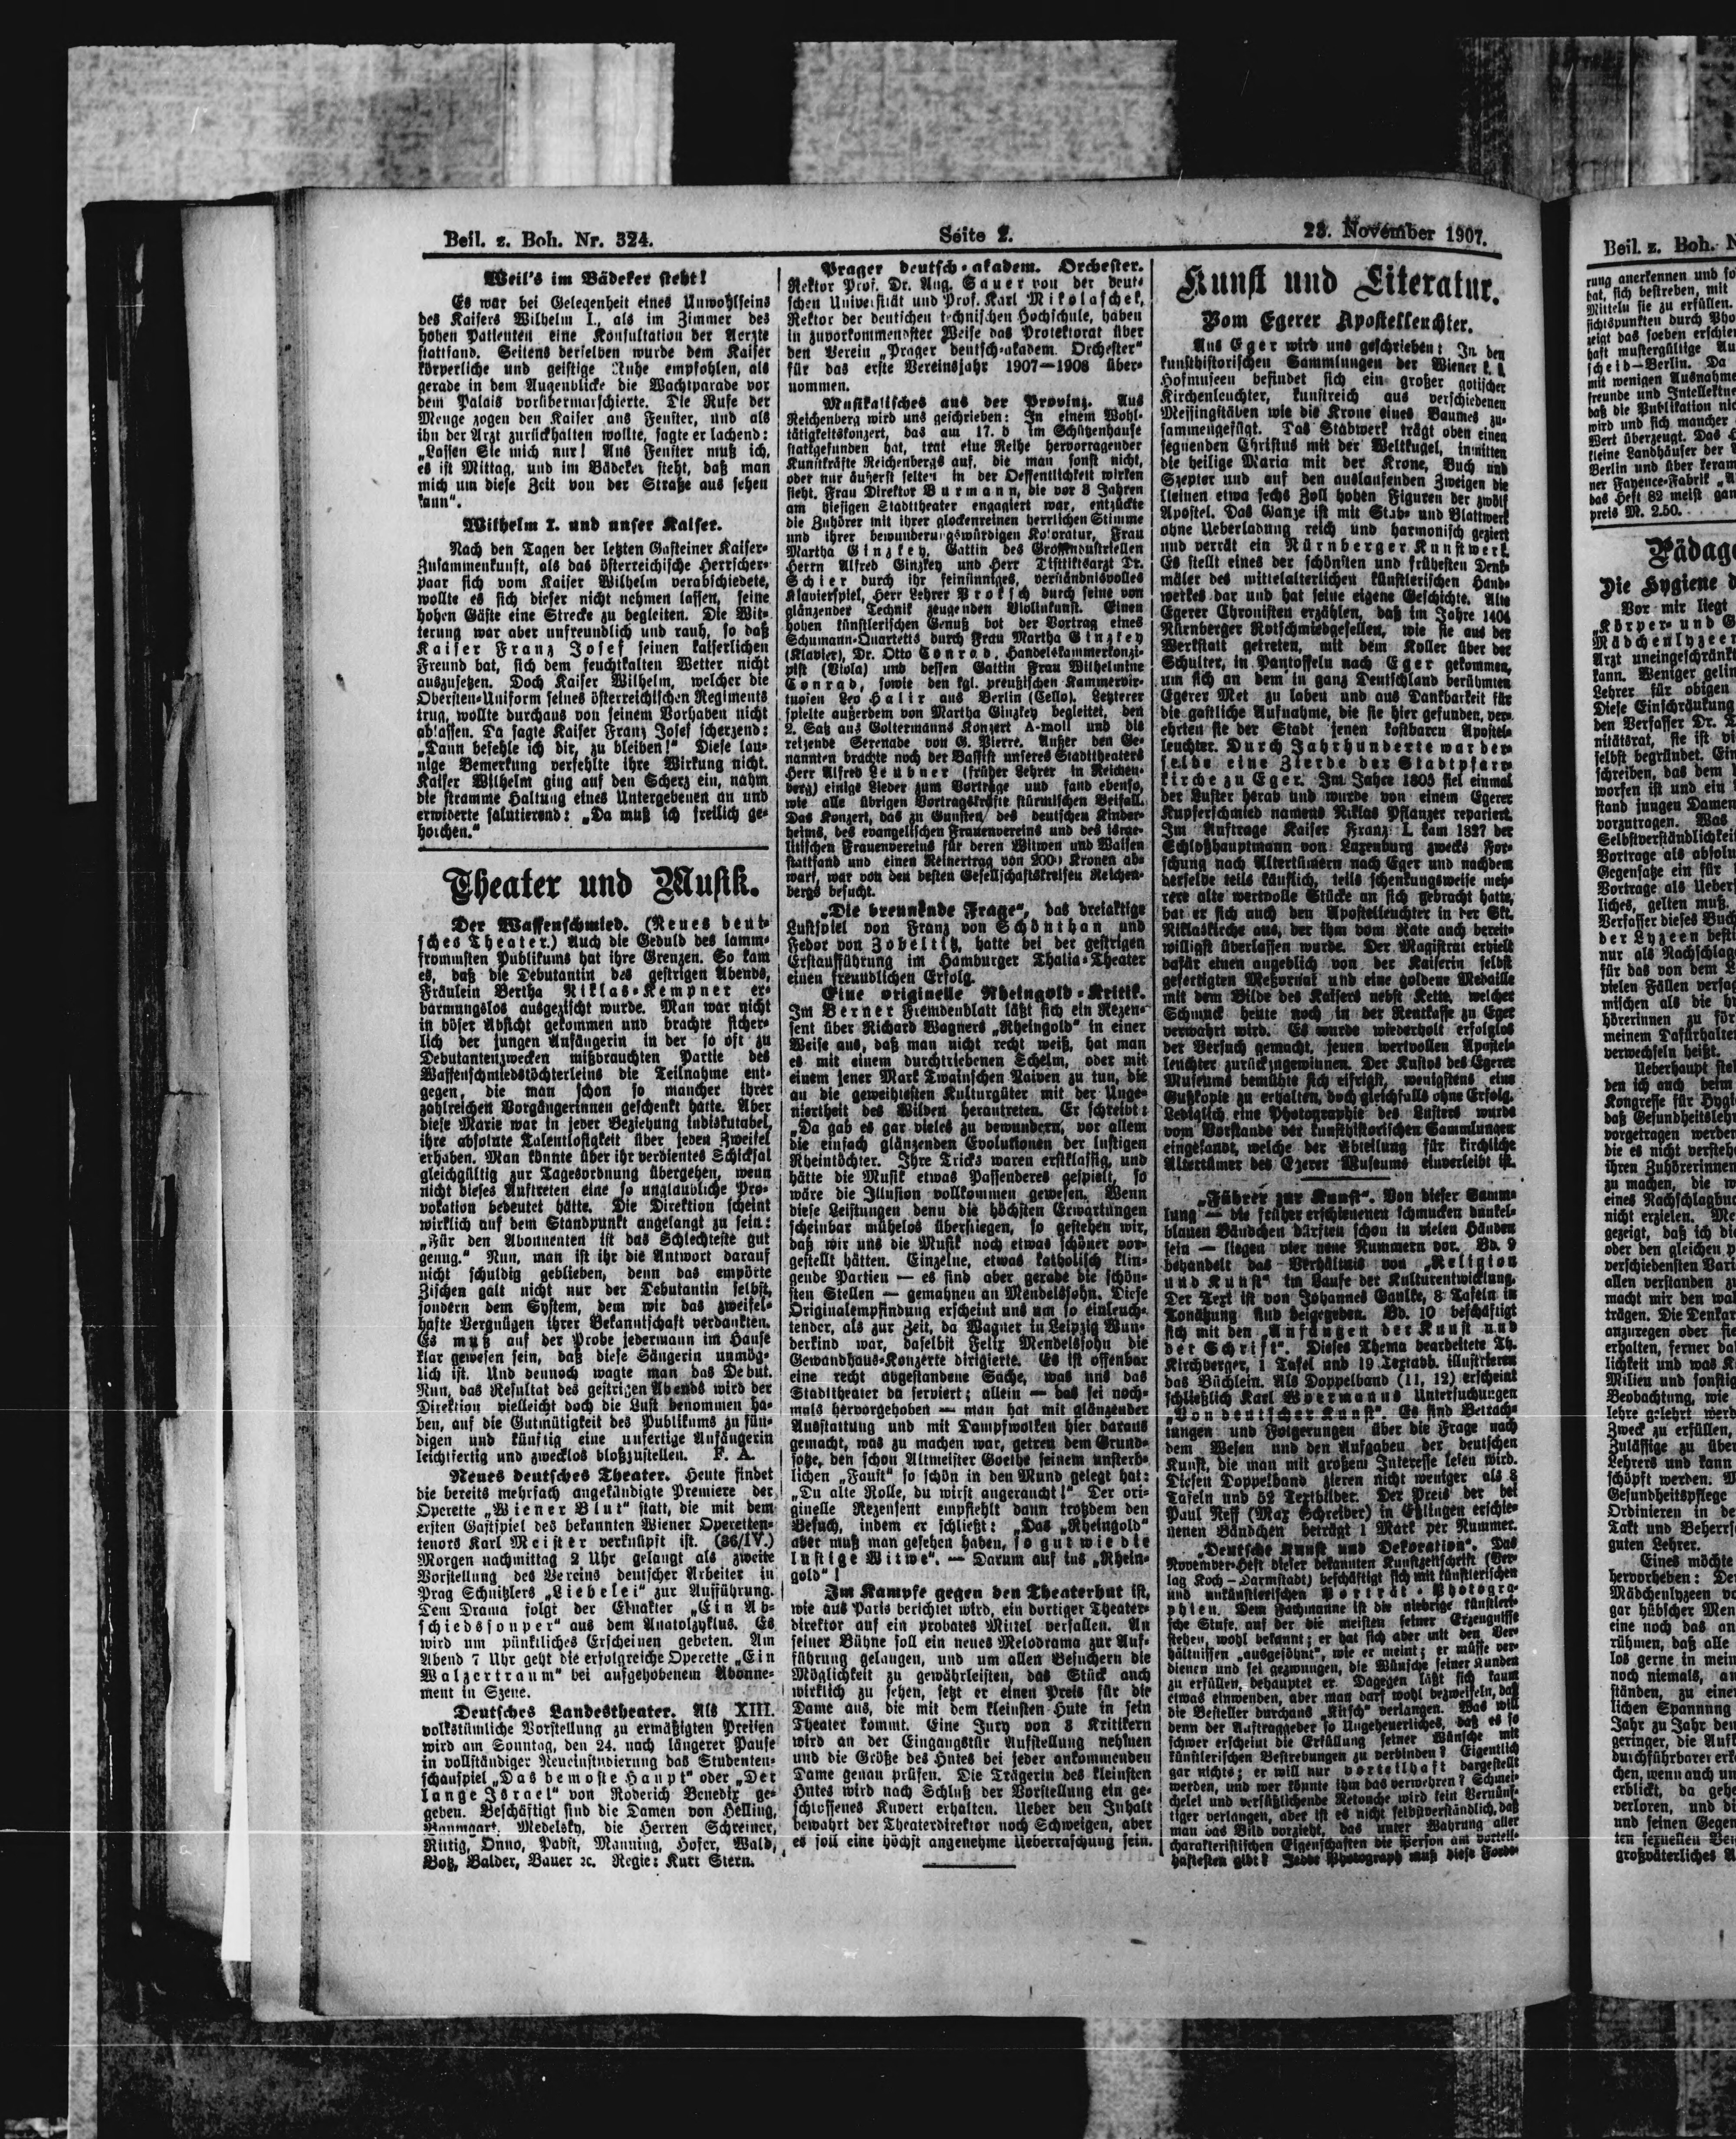 Beil. z. Boh. Nr. 324.
Seite 2.
23. November 1907.
Weil's im Bädeker steht!
Es war bei Gelegenheit eines Unwohlseins
des Kaisers Wilhelm I., als im Zimmer des
hohen Patienten eine Konsultation der Aerzte
stattfand. Seitens derselben wurde dem Kaiser
körperliche und geistige Ruhe empfohlen, als
gerade in dem Augenblicke die Wachtparade vor
dem Palais vorübermarschierte. Die Rufe der
Menge zogen den Kaiser ans Fenster, und als
ihn der Arzt zurückhalten wollte, sagte er lachend:
„Lassen Sie mich nur! Ans Fenster muß ich,
es ist Mittag, und im Bädeker steht, daß man
mich um diese Zeit von der Straße aus sehen
kann“.
Wilhelm I. und unser Kaiser.
Nach den Tagen der letzten Gasteiner Kaiser-
Zusammenkunft, als das österreichische Herrscher-
paar sich vom Kaiser Wilhelm verabschiedete,
wollte es sich dieser nicht nehmen lassen, seine
hohen Gäste eine Strecke zu begleiten. Die Wit-
terung war aber unfreundlich und rauh, so daß
Kaiser Franz Josef seinen kaiserlichen
Freund bat, sich dem feuchtkalten Wetter nicht
auszusetzen. Doch Kaiser Wilhelm, welcher die
Obersten-Uniform seines österreichischen Regiments
trug, wollte durchaus von seinem Vorhaben nicht
ablassen. Da sagte Kaiser Franz Josef scherzend:
„Dann befehle ich dir, zu bleiben!“ Diese lau-
nige Bemerkung verfehlte ihre Wirkung nicht.
Kaiser Wilhelm ging auf den Scherz ein, nahm
die stramme Haltung eines Untergebenen an und
erwiderte salutierend: „Da muß ich freilich ge-
horchen.“
Theater und Musik.
Der Waffenschmied. (Neues deut-
sches Theater.) Auch die Geduld des lamm-
frommsten Publikums hat ihre Grenzen. So kam
es, daß die Debutantin des gestrigen Abends,
Fräulein Bertha Niklas-Kempner er-
barmungslos ausgezischt wurde. Man war nicht
in böser Absicht gekommen und brachte sicher-
lich der jungen Anfängerin in der so oft zu
Debutantenzwecken mißbrauchten Partie des
Waffenschmiedstöchterleins die Teilnahme ent-
gegen, die man schon so mancher ihrer
zahlreichen Vorgängerinnen geschenkt hatte. Aber
diese Marie war in jeder Beziehung indiskutabel,
ihre absolute Talentlosigkeit über jeden Zweifel
erhaben. Man könnte über ihr verdientes Schicksal
gleichgültig zur Tagesordnung übergehen, wenn
nicht dieses Auftreten eine so unglaubliche Pro-
vokation bedeutet hätte. Die Direktion scheint
wirklich auf dem Standpunkt angelangt zu sein:
„Für den Abonnenten ist das Schlechteste gut
genug.“ Nun, man ist ihr die Antwort darauf
nicht schuldig geblieben, denn das empörte
Zischen galt nicht nur der Debutantin selbst,
sondern dem System, dem wir das zweifel-
hafte Vergnügen ihrer Bekanntschaft verdankten.
Es muß auf der Probe jedermann im Hause
klar gewesen sein, daß diese Sängerin unmög-
lich ist. Und dennoch wagte man das Debut.
Nun, das Resultat des gestrigen Abends wird der
Direktion vielleicht doch die Lust benommen ha-
ben, auf die Gutmütigkeit des Publikums zu sün-
digen und künftig eine unfertige Anfängerin
leichtfertig und zwecklos bloßzustellen. F. A.
Neues deutsches Theater. Heute findet
die bereits mehrfach angekündigte Premiere der
Operette „Wiener Blut“ statt, die mit dem
ersten Gastspiel des bekannten Wiener Operetten-
tenors Karl Meister verknüpft ist. (36/IV.)
Morgen nachmittag 2 Uhr gelangt als zweite
Vorstellung des Vereins deutscher Arbeiter in
Prag Schnitzlers „Liebelei“ zur Aufführung.
Dem Drama folgt der Einakter „Ein Ab-
schiedssouper“ aus dem Anatolzyklus. Es
wird um pünktliches Erscheinen gebeten. Am
Abend 7 Uhr geht die erfolgreiche Operette „Ein
Walzertraum“ bei aufgehobenem Abonne-
ment in Szene.
Deutsches Landestheater. Als XIII.
volkstümliche Vorstellung zu ermäßigten Preisen
wird am Sonntag, den 24. nach längerer Pause
in vollständiger Neueinstudierung das Studenten-
schauspiel „Das bemoste Haupt“ oder „Der
lange Israel“ von Roderich Benedix ge-
geben. Beschäftigt sind die Damen von Helling,
Baumgart, Medelsky, die Herren Schreiner,
Rittig, Onno, Pabst, Manning, Hofer, Wald,
Botz, Balder, Bauer ꝛc. Regie: Kurt Stern.
Prager deutsch-akadem. Orchester.
Rektor Prof. Dr. Aug. Sauer von der deut-
schen Universität und Prof. Karl Mikolaschek,
Rektor der deutschen technischen Hochschule, haben
in zuvorkommendster Weise das Protektorat über
den Verein „Prager deutsch-akadem. Orchester“
für das erste Vereinsjahr 1907—1908 über-
nommen.
Musikalisches aus der Provinz. Aus
Reichenberg wird uns geschrieben: In einem Wohl-
tätigkeitskonzert, das am 17. d im Schützenhause
stattgefunden hat, trat eine Reihe hervorragender
Kunstkräfte Reichenbergs auf, die man sonst nicht,
oder nur äußerst selten in der Oeffentlichkeit wirken
sieht. Frau Direktor Burmann, die vor 8 Jahren
am hiesigen Stadttheater engagiert war, entzückte
die Zuhörer mit ihrer glockenreinen herrlichen Stimme
und ihrer bewunderungswürdigen Koloratur, Frau
Martha Ginzkey, Gattin des Großindustriellen
Herrn Alfred Ginzkey und Herr Distriktsarzt Dr.
Schier durch ihr feinsinniges, verständnisvolles
Klavierspiel, Herr Lehrer Proksch durch seine von
glänzender Technik zeugenden Violinkunst. Einen
hohen künstlerischen Genuß bot der Vortrag eines
Schumann-Quartetts durch Frau Martha Ginzkey
(Klavier), Dr. Otto Conrad, Handelskammerkonzi-
pist (Viola) und dessen Gattin Frau Wilhelmine
Conrad, sowie den kgl. preußischen Kammervir-
tuosen Leo Halir aus Berlin (Cello). Letzterer
spielte außerdem von Martha Ginzkey begleitet, den
2. Satz aus Goltermanns Konzert A-moll und die
reizende Serenade von G. Pierre. Außer den Ge-
nannten brachte noch der Bassist unseres Stadttheaters
Herr Alfred Leubner (früher Lehrer in Reichen-
berg) einige Lieder zum Vortrage und fand ebenso,
wie alle übrigen Vortragskräfte stürmischen Beifall.
Das Konzert, das zu Gunsten des deutschen Kinder-
heims, des evangelischen Frauenvereins und des israe-
litischen Frauenvereins für deren Witwen und Waisen
stattfand und einen Reinertrag von 2000 Kronen ab-
warf, war von den besten Gesellschaftskreisen Reichen-
bergs besucht.
„Die brennende Frage“, das dreiaktige
Lustspiel von Franz von Schönthan und
Fedor von Zobeltitz, hatte bei der gestrigen
Erstaufführung im Hamburger Thalia-Theater
einen freundlichen Erfolg.
Eine originelle Rheingold-Kritik.
Im Berner Fremdenblatt läßt sich ein Rezen-
sent über Richard Wagners „Rheingold“ in einer
Weise aus, daß man nicht recht weiß, hat man
es mit einem durchtriebenen Schelm, oder mit
einem jener Mark Twainschen Naiven zu tun, die
an die geweihtesten Kulturgüter mit der Unge-
niertheit des Wilden herantreten. Er schreibt:
„Da gab es gar vieles zu bewundern, vor allem
die einfach glänzenden Evolutionen der lustigen
Rheintöchter. Ihre Tricks waren erstklassig, und
hätte die Musik etwas Passenderes gespielt, so
wäre die Illusion vollkommen gewesen. Wenn
diese Leistungen denn die höchsten Erwartungen
scheinbar mühelos überstiegen, so gestehen wir,
daß wir uns die Musik noch etwas schöner vor-
gestellt hätten. Einzelne, etwas katholisch klin-
gende Partien — es sind aber gerade die schön-
sten Stellen — gemahnen an Mendelsjohn. Diese
Originalempfindung erscheint uns um so einleuch-
tender, als zur Zeit, da Wagner in Leipzig Wun-
derkind war, daselbst Felix Mendelsjohn die
Gewandhaus-Konzerte dirigierte. Es ist offenbar
eine recht abgestandene Sache, was uns das
Stadttheater da serviert; allein — das sei noch-
mals hervorgehoben — man hat mit glänzender
Ausstattung und mit Dampfwolken hier daraus
gemacht, was zu machen war, getreu dem Grund-
satze, den schon Altmeister Goethe seinem unsterb-
lichen „Faust“ so schön in den Mund gelegt hat:
„Du alte Rolle, du wirst angeraucht!“ Der ori-
ginelle Rezensent empfiehlt dann trotzdem den
Besuch, indem er schließt: „Das „Rheingold“
aber muß man gesehen haben, so gut wie die
lustige Witwe“. — Darum auf ins „Rhein-
gold“!
Im Kampfe gegen den Theaterhut ist,
wie aus Paris berichtet wird, ein dortiger Theater-
direktor auf ein probates Mittel verfallen. An
seiner Bühne soll ein neues Melodrama zur Auf-
führung gelangen, und um allen Besuchern die
Möglichkeit zu gewährleisten, das Stück auch
wirklich zu sehen, setzt er einen Preis für die
Dame aus, die mit dem kleinsten Hute in sein
Theater kommt. Eine Jury von 8 Kritikern
wird an der Eingangstür Aufstellung nehmen
und die Größe des Hutes bei jeder ankommenden
Dame genau prüfen. Die Trägerin des kleinsten
Hutes wird nach Schluß der Vorstellung ein ge-
schlossenes Kuvert erhalten. Ueber den Inhalt
bewahrt der Theaterdirektor noch Schweigen, aber
es soll eine höchst angenehme Ueberraschung sein.
Kunst und Literatur.
Vom Egerer Apostelleuchter.
Aus Eger wird uns geschrieben: In den
kunsthistorischen Sammlungen der Wiener k. k.
Hofmuseen befindet sich ein großer gotischer
Kirchenleuchter, kunstreich aus verschiedenen
Messingstäben wie die Krone eines Baumes zu-
sammengefügt. Das Stabwerk trägt oben einen
segnenden Christus mit der Weltkugel, inmitten
die heilige Maria mit der Krone, Buch und
Szepter und auf den auslaufenden Zweigen die
kleinen etwa sechs Zoll hohen Figuren der zwölf
Apostel. Das Ganze ist mit Stab- und Blattwerk
ohne Ueberladung reich und harmonisch geziert
und verrät ein Nürnberger Kunstwerk.
Es stellt eines der schönsten und frühesten Denk-
mäler des mittelalterlichen künstlerischen Hand-
werkes dar und hat seine eigene Geschichte. Alte
Egerer Chronisten erzählen, daß im Jahre 1404
Nürnberger Rotschmiedgesellen, wie sie aus der
Werkstatt getreten, mit dem Koller über der
Schulter, in Pantoffeln nach Eger gekommen,
um sich an dem in ganz Deutschland berühmten
Egerer Met zu laben und aus Dankbarkeit für
die gastliche Aufnahme, die sie hier gefunden, ver-
ehrten sie der Stadt jenen kostbaren Apostel-
leuchter. Durch Jahrhunderte war der-
selbe eine Zierde der Stadtpfarr-
kirche zu Eger. Im Jahre 1805 fiel einmal
der Luster herab und wurde von einem Egerer
Kupferschmied namens Niklas Pflanzer repariert.
Im Auftrage Kaiser Franz I. kam 1827 der
Schloßhauptmann von Laxenburg zwecks For-
schung nach Altertümern nach Eger und nachdem
derselbe teils käuflich, teils schenkungsweise meh-
rere alte wertvolle Stücke an sich gebracht hatte,
bat er sich auch den Apostelleuchter in der Skt.
Niklaskirche aus, der ihm vom Rate auch bereit-
willigst überlassen wurde. Der Magistrat erhielt
dafür einen angeblich von der Kaiserin selbst
gefertigten Meßornat und eine goldene Medaille
mit dem Bilde des Kaisers nebst Kette, welcher
Schmuck heute noch in der Rentkasse zu Eger
verwahrt wird. Es wurde wiederholt erfolglos
der Versuch gemacht, jenen wertvollen Apostel-
leuchter zurückzugewinnen. Der Kustos des Egerer
Museums bemühte sich eifrigst, wenigstens eine
Gußkopie zu erhalten, doch gleichfalls ohne Erfolg.
Lediglich eine Photographie des Lusters wurde
vom Vorstande der kunsthistorischen Sammlungen
eingesandt, welche der Abteilung für kirchliche
Altertümer des Egerer Museums einverleibt ist.
„Führer zur Kunst“. Von dieser Samm-
lung — die früher erschienenen schmucken dunkel-
blauen Bändchen dürften schon in vielen Händen
sein — liegen vier neue Nummern vor. Bd. 9
behandelt das Verhältnis von „Religion
und Kunst“ im Laufe der Kulturentwicklung.
Der Text ist von Johannes Gaulke, 8 Tafeln in
Tonätzung sind beigegeben. Bd. 10 beschäftigt
sich mit den „Anfängen der Kunst und
der Schrift“. Dieses Thema bearbeitete Th.
Kirchberger, 1 Tafel und 19 Textabb. illustrieren
das Büchlein. Als Doppelband (11, 12) erscheint
schließlich Karl Woermanns Untersuchungen
„Von deutscher Kunst“. Es sind Betrach-
tungen und Folgerungen über die Frage nach
dem Wesen und den Aufgaben der deutschen
Kunst, die man mit großem Interesse lesen wird.
Diesen Doppelband zieren nicht weniger als 8
Tafeln und 52 Textbilder. Der Preis der bei
Paul Neff (Max Schreiber) in Eßlingen erschie-
nenen Bändchen beträgt 1 Mark per Nummer.
„Deutsche Kunst und Dekoration“. Das
November-Heft dieser bekannten Kunstzeitschrift (Ver-
lag Koch – Darmstadt) beschäftigt sich mit künstlerischen
und unkünstlerischen Porträt-Photogra-
phien. Dem Fachmanne ist die niedrige künstleri-
sche Stufe, auf der die meisten seiner Erzeugnisse
stehen, wohl bekannt; er hat sich aber mit den Ver-
hältnissen „ausgesöhnt“, wie er meint; er müsse ver-
dienen und sei gezwungen, die Wünsche seiner Kunden
zu erfüllen, behauptet er. Dagegen läßt sich kaum
etwas einwenden, aber man darf wohl bezweifeln, daß
die Besteller durchaus „Kitsch“ verlangen. Was will
denn der Auftraggeber so Ungeheuerliches, daß es so
schwer erscheint die Erfüllung seiner Wünsche mit
künstlerischen Bestrebungen zu verbinden? Eigentlich
gar nichts; er will nur vorteilhaft dargestellt
werden, und wer könnte ihm das verwehren? Schmei-
chelei und versüßlichende Retouche wird kein Vernünf-
tiger verlangen, aber ist es nicht selbstverständlich, daß
man das Bild vorzieht, das unter Wahrung aller
charakteristischen Eigenschaften die Person am vorteil-
haftesten gibt? Jeder Photograph muß diese Forde-
Beil. z. Boh. N
rung anerkennen und so
hat, sich bestreben, mit
Mitteln sie zu erfüllen.
sichtspunkten durch Pho
zeigt das soeben erschie
haft mustergültige Au
scheid–Berlin. Da
mit wenigen Ausnahme
freunde und Intellektue
daß die Publikation nic
wird und sich mancher
Wert überzeugt. Das
kleine Landhäuser der
Berlin und über keram
ner Fayence-Fabrik
das Heft 82 meist gan
preis M. 2.50.
Pädago
Die Hygiene d
Vor mir liegt
„Körper- und G
Mädchenlyzeen
Arzt uneingeschränkt
kann. Weniger gelin
Lehrer für obigen
Diese Einschränkung
den Verfasser Dr. T
nitätsrat, sie ist vi
selbst begründet. Ein
schreiben, das dem
worfen ist und ein
stand jungen Damen
vorzutragen. Was
Selbstverständlichkeit
Vortrage als absolu
Gegensatze ein für
Vortrage als Uebers
liches, gelten muß.
Verfasser dieses Buch
der Lyzeen besti
nur als Nachschlag
für das von dem L
vielen Fällen versag
mischen als die b
hörerinnen zu för
meinem Dafürhalten
verwechseln heißt.
Ueberhaupt stel
den ich auch beim
Kongresse für Hygi
daß Gesundheitslehr
vorgetragen werden
die es nicht versteh
ihren Zuhörerinnen
zu machen, die w
eines Nachschlagbuc
nicht erzielen. Me
gezeigt, daß ich die
oder den gleichen p
verschiedensten Vari
allen verstanden zu
macht mir den wal
trägen. Die Denkar
anzuregen oder sie
erhalten, ferner da
lichkeit und was K
Milieu und sonstig
Beobachtung, wie
lehre gelehrt werd
Zweck zu erfüllen,
Zulässige zu über
Lehrers und kann
schöpft werden. M
Gesundheitspflege
Ordinieren in de
Takt und Beherrs
guten Lehrer.
Eines möchte
hervorheben: De
Mädchenlyzeen vo
gar hübscher Men
eine noch das an
rühmen, daß alle
los gerne in mein
noch niemals, an
ständen, zu eine
lichen Spannung
Jahr zu Jahr den
geringer, die Aufk
durchführbarer erk
chen, wenn auch un
erblickt, da gehe
verloren, und di
und seinen Gegen
ten sexuellen Bei
großväterliches A